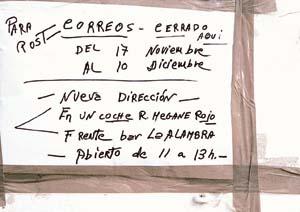 PARA POST
CORREOS - CERRADO AQUI
DEL 17 Noviembre
AL 10 Diciembre
- NUEVA DIRECCIÓN -
EN UN COCHE R. MEGANE ROJO
FRENTE bar LA ALAMBRA
- Abierto de 11 a 13h. -